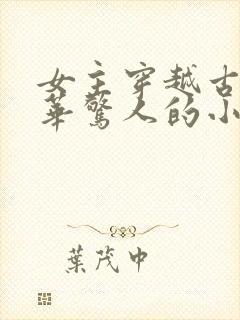 女主穿越古
華驚人的小
葉茂中